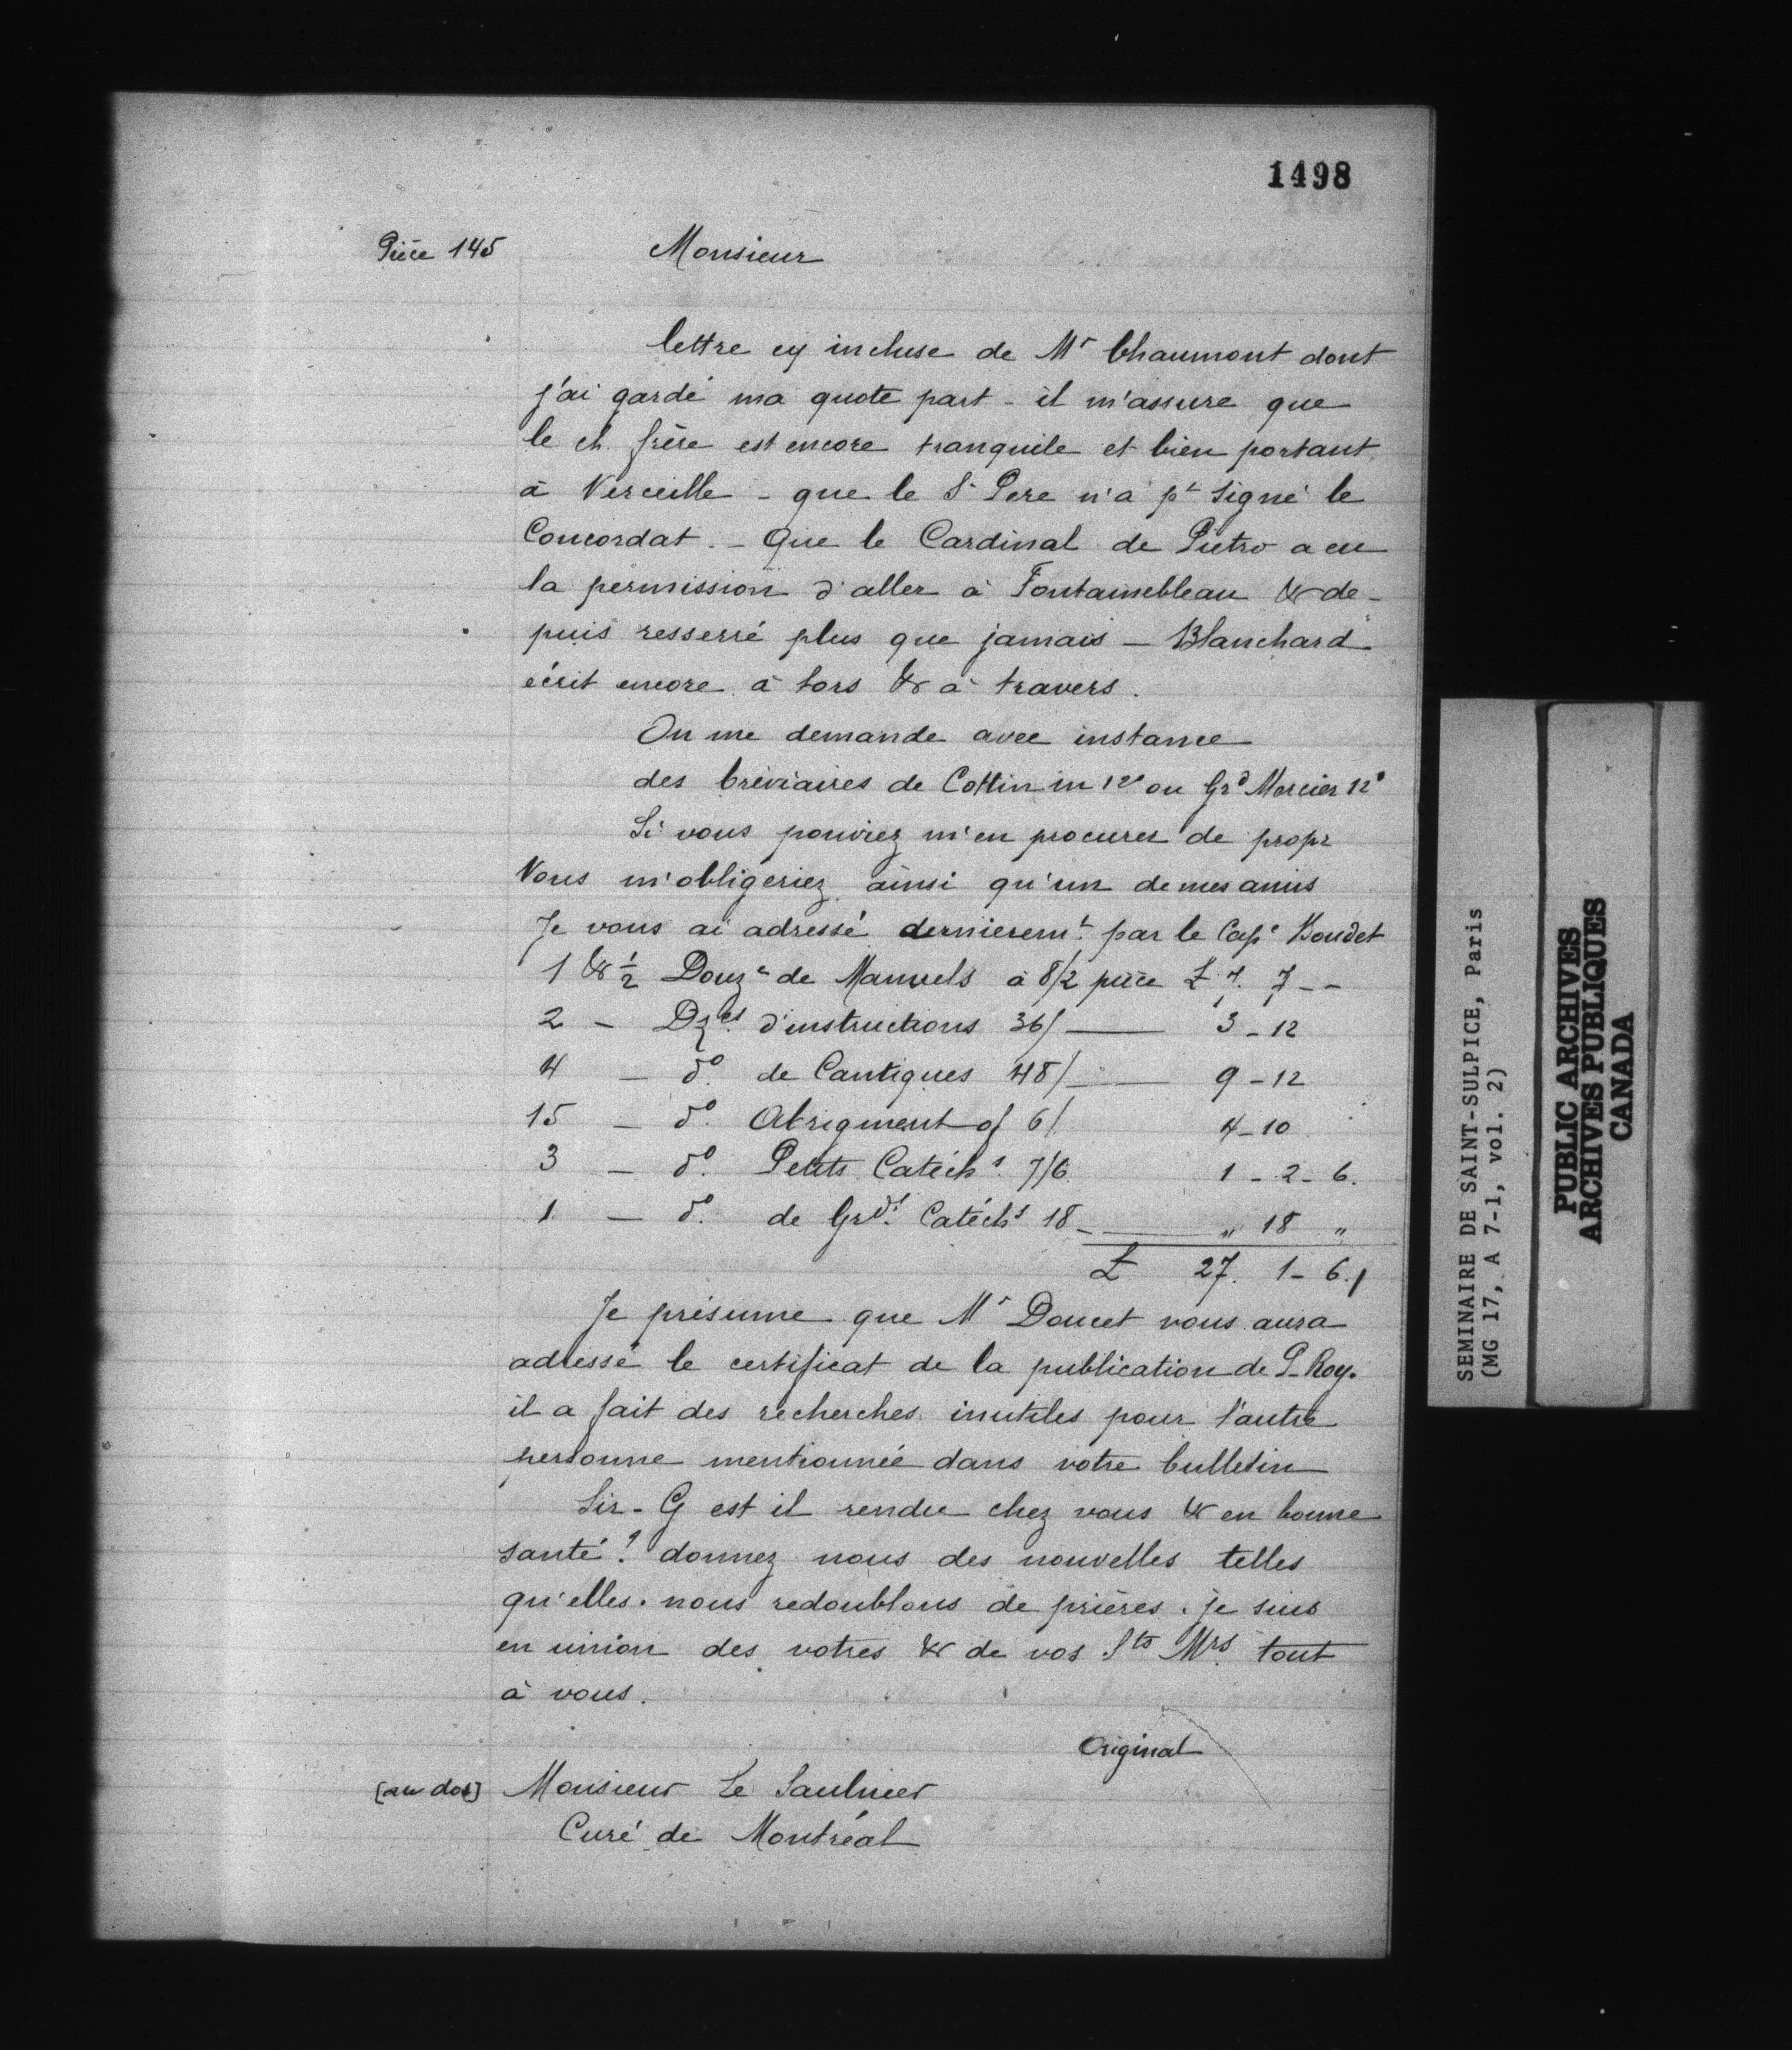 1498
Pièce 145
Monsieur
lettre cy incluse de Mr Chaumont dont
j'ai gardé ma quote part - il m'assure que
le ch. frère est encore tranquile et bien portant
à Verceille - que le St Pere n'a pt signé le
Concordat. - Que le Cardinal de Pietro a eu
la permission d'aller à Fontainebleau & de-
puis resserré plus que jamais - Blanchard
écrit encore à tors & à travers.
On me demande avec instance
des bréviaires de Cottin in 12o ou Grd Mercier 12o
Si vous pouviez m'en procurer de propr
Vous m'obligeriez ainsi qu'un de mes amis
Je vous ai adressé dernieremt par le Cape Boudet
1 & 1/2 Douze de Manuels à 8/2 pièce £ 7. 7 - -
2 - Dzes d'instructions 36/ 3 - 12
4 - do. de Cantiques 48/ 9 - 12
15 - do. Abrigment of 6/ 4 - 10
3 - do. Petits Catéchs 7/6 1 - 2 - 6.
1 - do. de Grds Catéchs 18 " 18 "
£ 27. 1 - 6.
Je présume que Mr Doucet vous aura
adressé le certificat de la publication de P. Roy.
il a fait des recherches inutiles pour l'autre
personne mentionnée dans votre bulletin
Sir - G est il rendu chez vous & en bonne
santé? donnez nous des nouvelles telles
qu'elles. nous redoublons de prières. je suis
en union des votres & de vos Sts Mrs tout
à vous.
Original
[au dos] Monsieur Le Saulnier
Curé de Montréal
SEMINAIRE DE SAINT-SULPICE, Paris
(MG 17, A 7-1, vol. 2)
PUBLIC ARCHIVES
ARCHIVES PUBLIQUES
CANADA